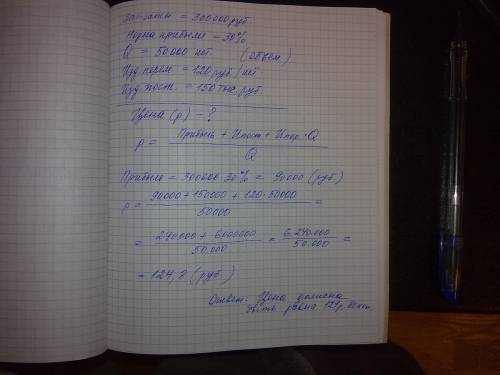 Затраты = 300000 руб
Норма прибыли = 30%
Q = 50 000 шт (объем)
Изд перем. = 120 руб/шт
Изд пост. = 150 тыс. руб.
Цена (p) - ?
p = Прибыль + Ипост + Ипер · Q
Q
Прибыль = 300000 · 30% = 90000 (руб)
p = 90000 + 150000 + 120 · 50000 =
50000
= 240.000 + 6000000 = 6.240.000 =
50.000 50.000
= 124,8 (руб)
Ответ: Цена должна
быть равна 124р. 80коп.